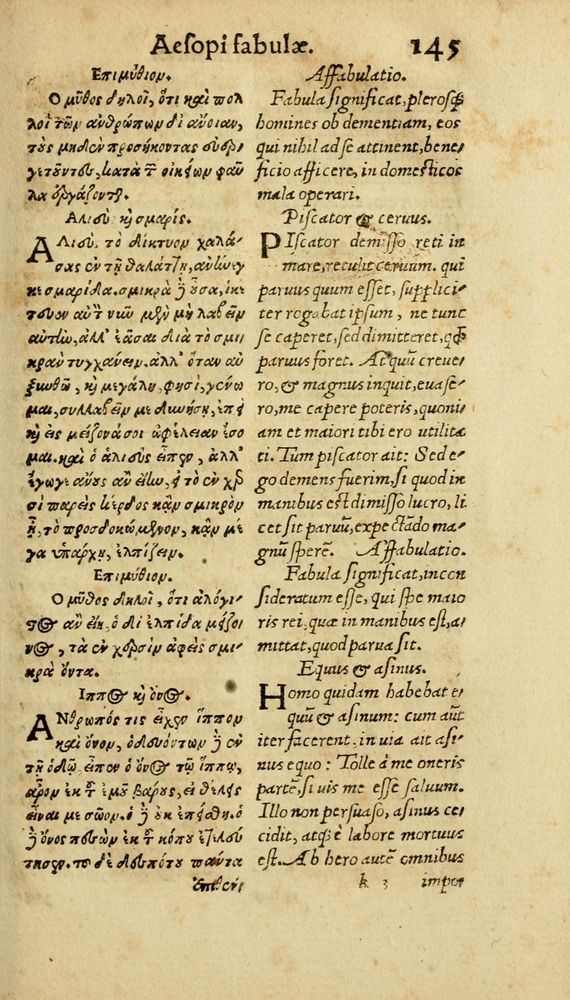 Aesopi fabulæ. 145
Ἐπιμύθιον.
Ὁ μῦθος δηλοῖ, ὅτι καὶ πολ
λοὶ τῶν ἀνθρώπων δι' ἄνοιαν,
τοὺς μηδὲν προσήκοντας εὐερ
γετοῦντες, κατὰ τῶν οἰκείων φαῦ
λα ἐργάζονται.
Ἁλιεὺς καὶ σμαρίς.
ἉΛιεὺς τὸ δίκτυον χαλά
σας ἐν τῇ θαλάττῃ, ἀνήνεγ
κε σμαρίδα. σμικρὰ δὲ οὖσα, ἱκέ
τευεν αὐτὸν νῦν μὲν μὴ λαβεῖν
αὐτὴν, ἀλλ' ἐᾶσαι διὰ τὸ σμι
κρὰν τυγχάνειν. ἀλλ' ὅταν αὐ
ξηθῶ, καὶ μεγάλη, φησὶ, γένω
μαι, συλλαβεῖν με δυνήσῃ, ἐπεὶ
καὶ εἰς μείζονά σοι ὠφέλειαν ἔσο
μαι. καὶ ὁ ἁλιεὺς εἶπεν, ἀλλ'
ἔγωγε ἄνους ἂν εἴην, εἰ τὸ ἐν χερ
σὶ παρεὶς κέρδος κἂν σμικρὸν
ᾖ, τὸ προσδοκώμενον, κἂν μέ
γα ὑπάρχῃ, ἐλπίζειν.
Ἐπιμύθιον.
Ὁ μῦθος δηλοῖ, ὅτι ἀλόγις
τος ἂν εἴη ὁ δι' ἐλπίδα μείζο
νος, τὰ ἐν χερσὶν ἀφεὶς σμι
κρὰ ὄντα.
Ἵππος καὶ ὄνος.
ἌΝθρωπός τις εἶχεν ἵππον
καὶ ὄνον, ὁδευόντων δὲ ἐν
τῇ ὁδῷ εἶπεν ὁ ὄνος τῷ ἵππῳ,
ἆρον ἐκ τοῦ ἐμοῦ βάρους, εἰ θέλεις
εἶναί με σῶον. ὁ δὲ οὐκ ἐπείσθη. ὁ
δὲ ὄνος πεσὼν ἐκ τοῦ κόπου ἐτελεύ
τησεν. τοῦ δὲ δεσπότου πάντα
ἐπιθέν
Affabulatio.
Fabula significat, plerosq́
homines ob dementiam, eos
qui nihil ad se attinent, bene
ficio afficere, in domesticos
mala operari.
Piscator & ceruus.
PIscator demisso reti in
mare, reculit ceruum. qui
paruus quum esset, supplici
ter rogabat ipsum, ne tunc
se caperet, sed dimitteret, qđ
paruus foret. At quũ creue
ro, & magnus inquit, euase
ro, me capere poteris, quoni
am et maiori tibi ero utilita
ti. Tum piscator ait: Sed e-
go demens fuerim, si quod in
manibus est dimisso lucro, li
cet sit paruũ, expectado ma
gnũ sperẽ. Affabulatio.
Fabula significat, incon
sideratum esse, qui spe maio
ris rei, quæ in manibus est, a
mittat, quod parua sit.
Equus & asinus.
HOmo quidam habebat e
quũ & asinum: cum aũt
iter facerent, in uia ait asi
nus equo: Tolle à me oneris
partẽ, si uis me esse saluum.
Illo non persuaso, asinus ce
cidit, atq́ è labore mortuus
est. Ab hero autẽ omnibus
k 3 impos